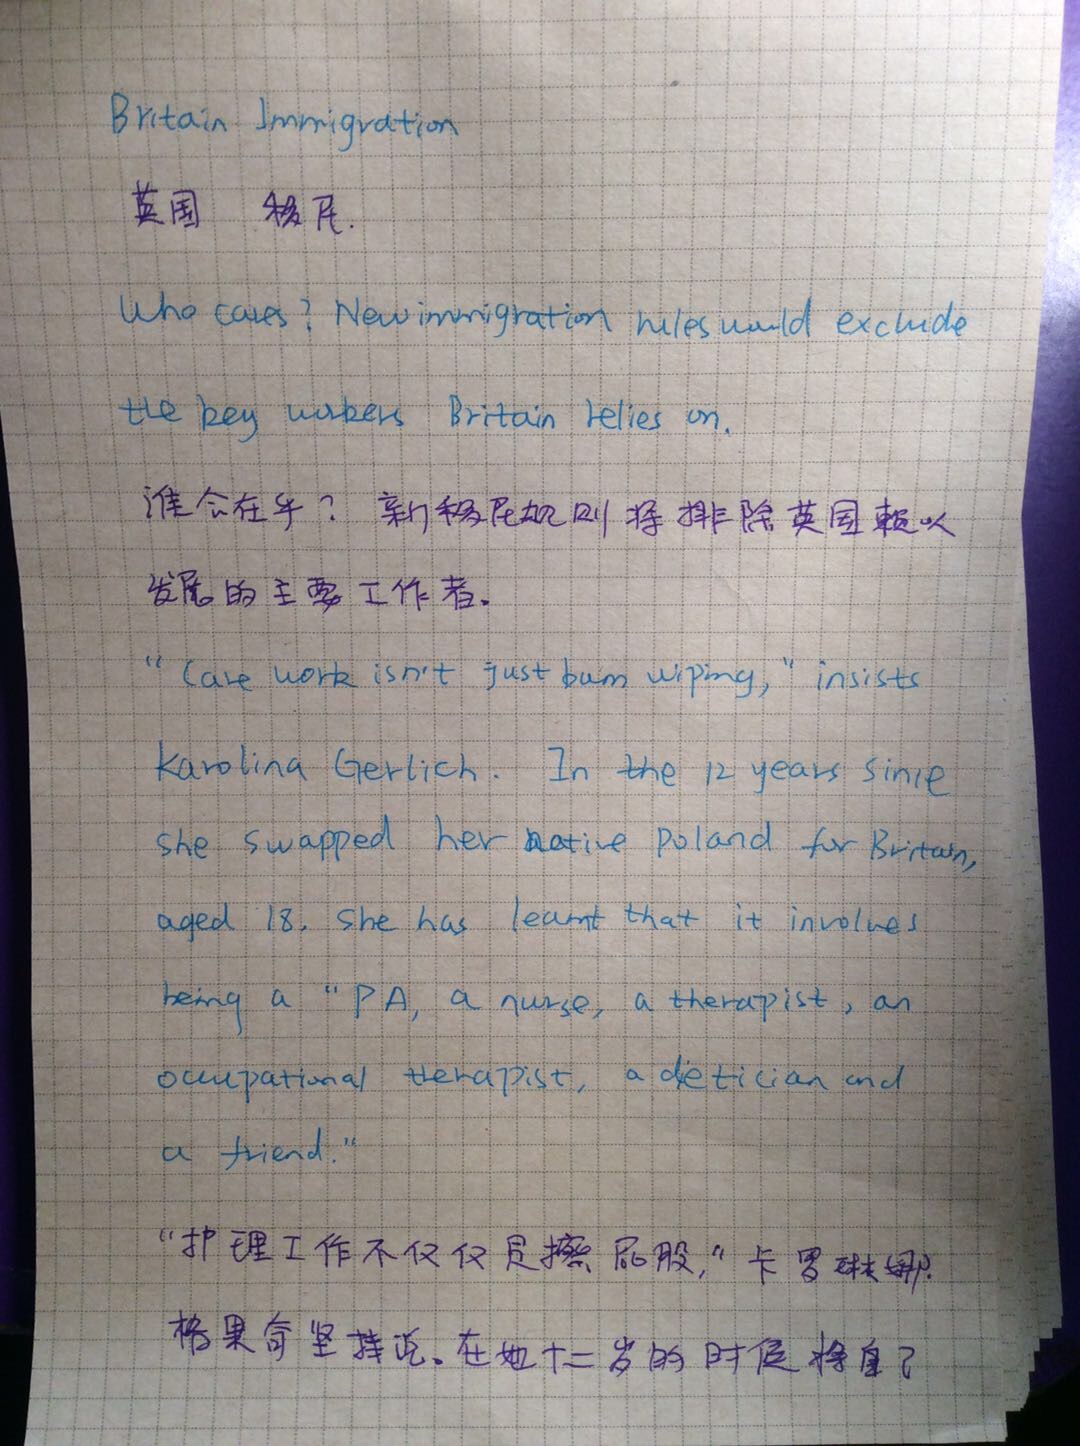 Britain Immigration
英国 移民.
Who cares? New immigration rules would exclude
the key workers Britain relies on.
谁会在乎? 新移民规则将排除英国赖以
发展的主要工作者。
"Care work isn't just bum wiping," insists
Karolina Gerlich. In the 12 years since
she swapped her native Poland for Britain,
aged 18. She has learnt that it involves
being a "PA, a nurse, a therapist, an
occupational therapist, a dietician and
a friend."
"护理工作不仅仅是擦屁股,"卡罗琳娜.
格果奇坚持说。在她十二岁的时候将自己